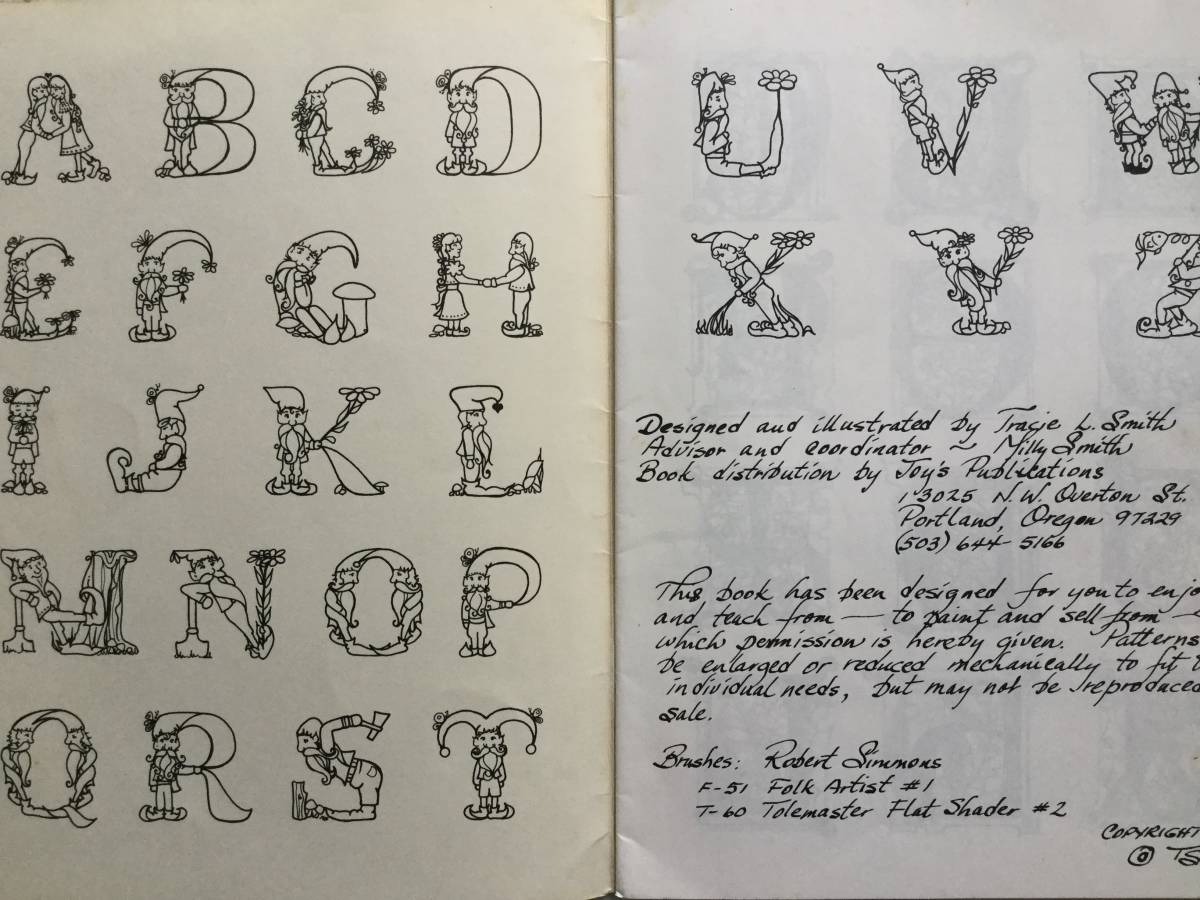 A B C D
E F G H
I J K L
M N O P
Q R S T
U V W
X Y Z
Designed and illustrated by Tracie L. Smith
Advisor and coordinator ~ Milly Smith
Book distribution by Joy's Publications
13025 N.W. Overton St.
Portland, Oregon 97229
(503) 644-5166
This book has been designed for you to enjo
and teach from — to paint and sell from —
which permission is hereby given. Patterns
be enlarged or reduced mechanically to fit
individual needs, but may not be reproduced
sale.
Brushes: Robert Simmons
F-51 Folk Artist #1
T-60 Tolemaster Flat Shader #2
COPYRIGHT
© TS